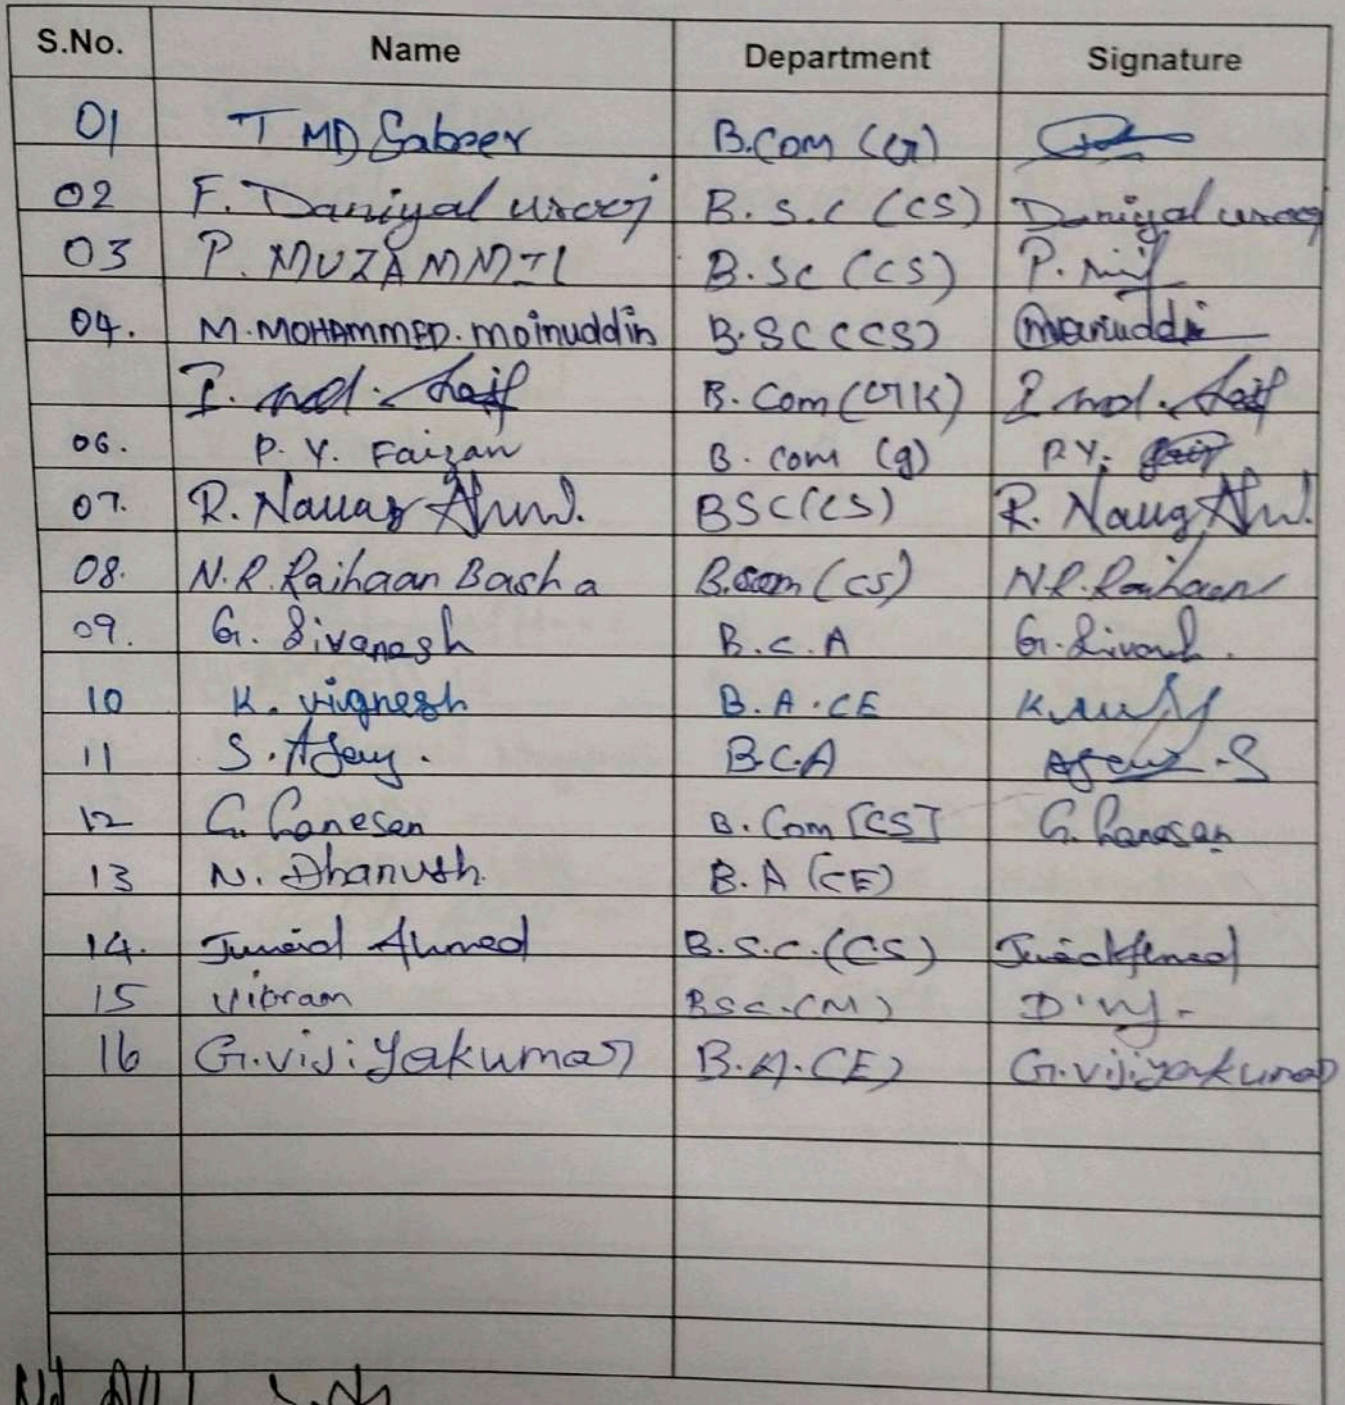 S.No. Name Department Signature
01 T MD Sabeer B.Com (G)
02 F. Daniyal urooj B.S.C (CS) Daniyal urooj
03 P. MUZAMMIL B.Sc (CS) P.
04. M.MOHAMMED.moinuddin B.SC (CS)
I. md. Saif B.Com (GTK) I md. Saif
06. P. Y. Faizan B. com (g) P.Y.
07. R. Nawaz Ahmd. BSC(CS) R. Nawaz Ahmd.
08. N.R. Raihaan Basha B.com (CS) N.R. Raihaan
09. G. Sivanesh B.C.A G. Sivanesh.
10 K. vignesh B.A.CE
11 S. Ajay. B.C.A Ajay.S
12 G. Ganesan B. Com [CS] G. Ganesan
13 N. Dhanush. B.A (CE)
14. Junaid Ahmed B.S.C.(CS) Junaid Ahmed
15 Vikram BSC.(M)
16 G.viji.yakumar B.A.(E) G.viji.yakumar